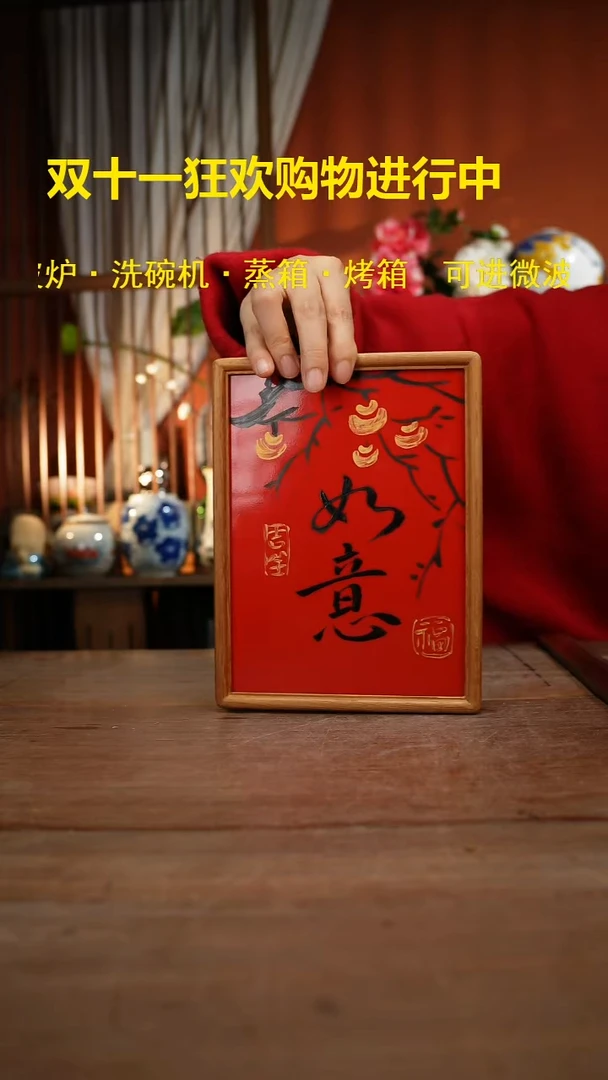 双十一狂欢购物进行中
炉·洗碗机·蒸箱·烤箱 可进微波
如
意
吉祥
福